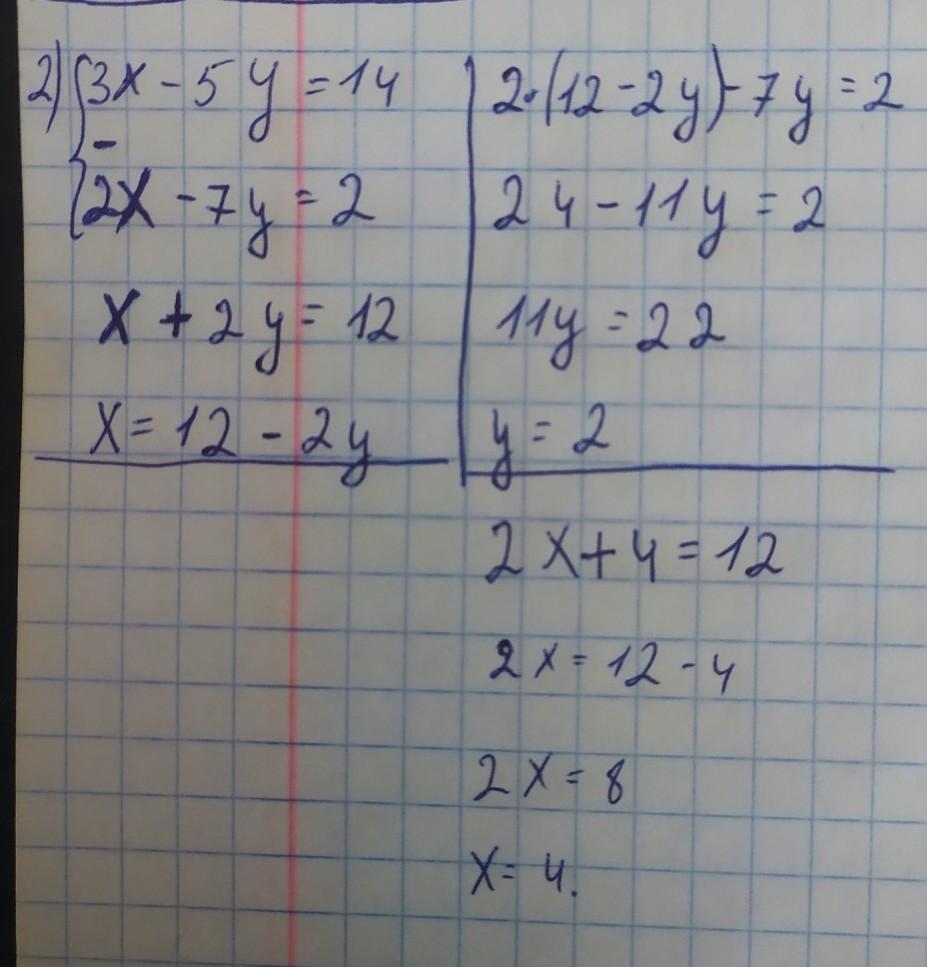 2) 3x - 5y = 14
-
2x - 7y = 2
x + 2y = 12
x = 12 - 2y
2·(12 - 2y) - 7y = 2
24 - 11y = 2
11y = 22
y = 2
2x + 4 = 12
2x = 12 - 4
2x = 8
x = 4.